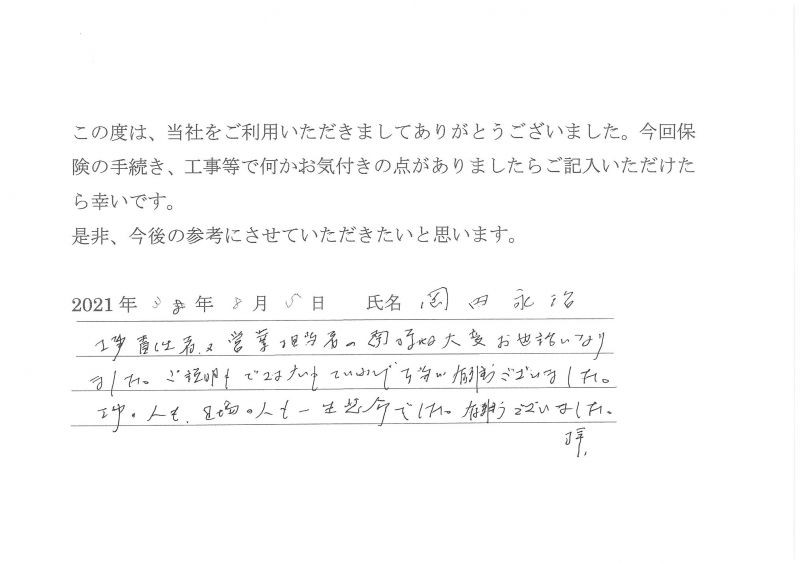 この度は、当社をご利用いただきましてありがとうございました。今回保
険の手続き、工事等で何かお気付きの点がありましたらご記入いただけた
ら幸いです。
是非、今後の参考にさせていただきたいと思います。
2021年 年 8月 5日 氏名 岡田永治
工事責任者、営業担当者の 大変お世話になり
ました。ご説明も ていねいで 有難うございました。
工事の人も、現場の人も一生懸命でした。有難うございました。
拝